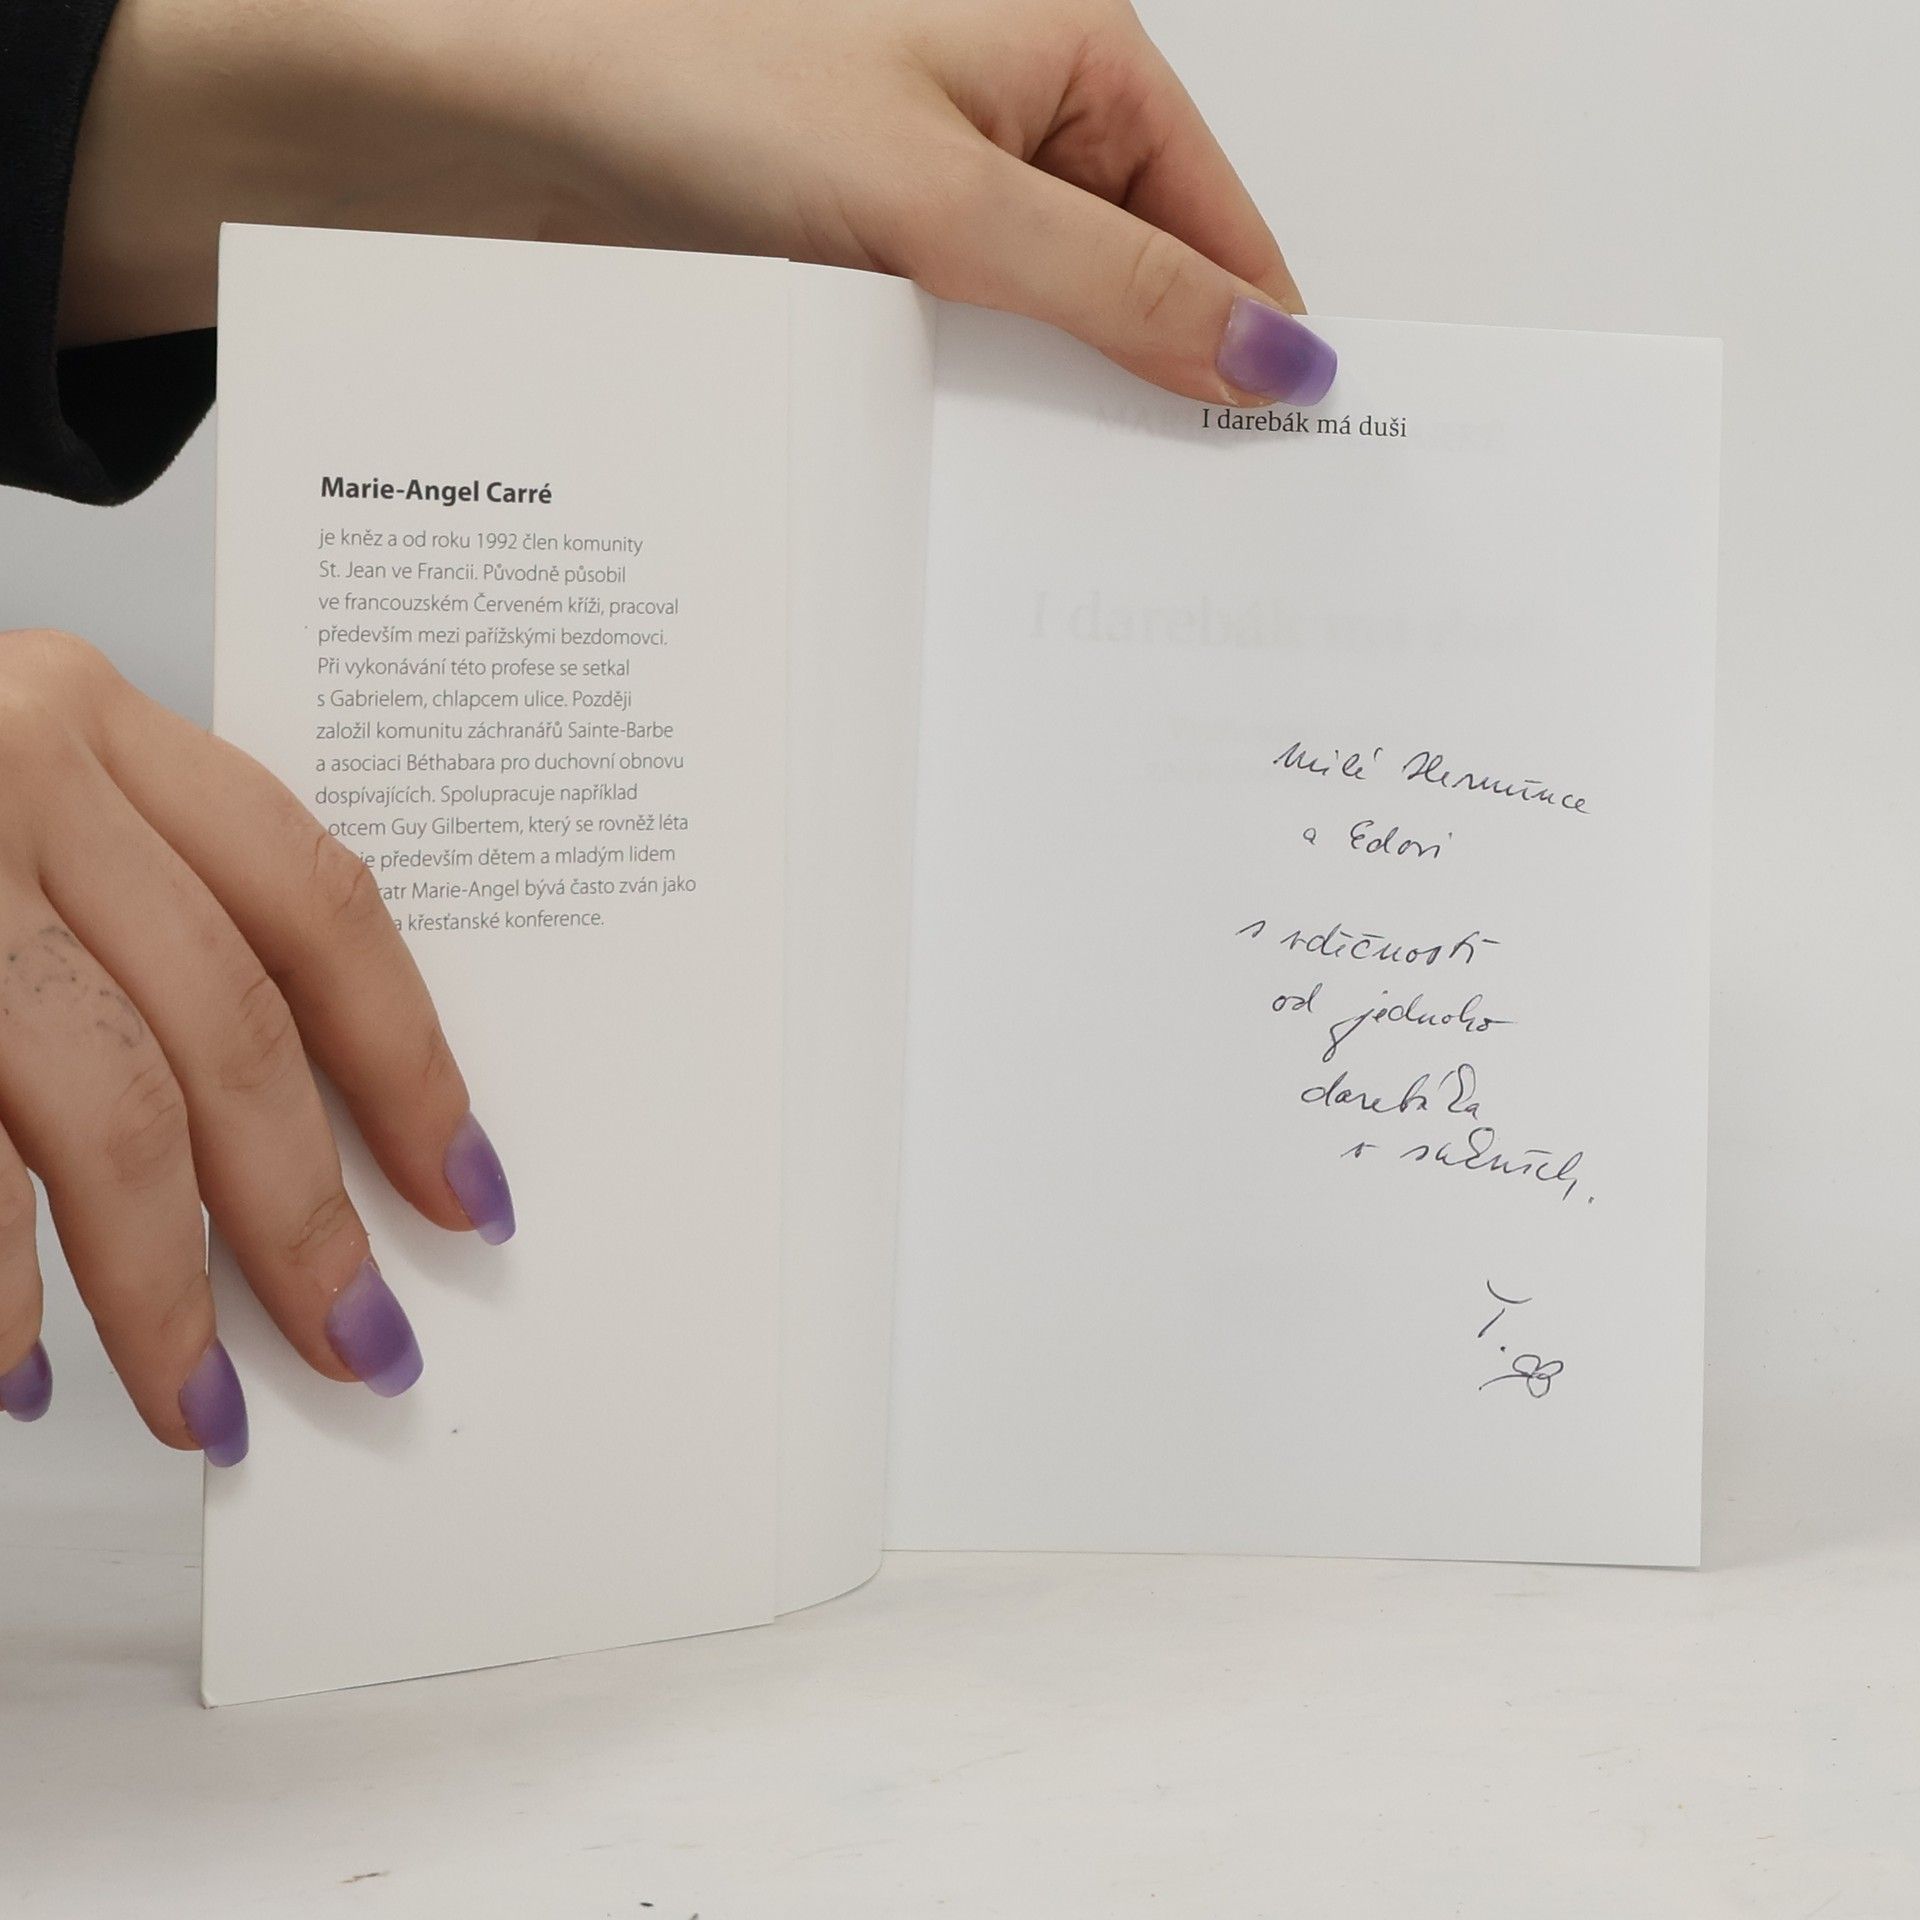 Marie-Angel Carré
je kněz a od roku 1992 člen komunity
St. Jean ve Francii. Původně působil
ve francouzském Červeném kříži, pracoval
především mezi pařížskými bezdomovci.
Při vykonávání této profese se setkal
s Gabrielem, chlapcem ulice. Později
založil komunitu záchranářů Sainte-Barbe
a asociaci Béthabara pro duchovní obnovu
dospívajících. Spolupracuje například
otcem Guy Gilbertem, který se rovněž léta
především dětem a mladým lidem
Marie-Angel bývá často zván jako
křesťanské konference.
I darebák má duši
Milé Hermínce
a Edovi
s vděčností
od jednoho
darebáka
v sukních.
T.